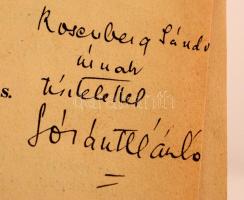 Rosenberg Sándor
úrnak
tisztelettel
s.